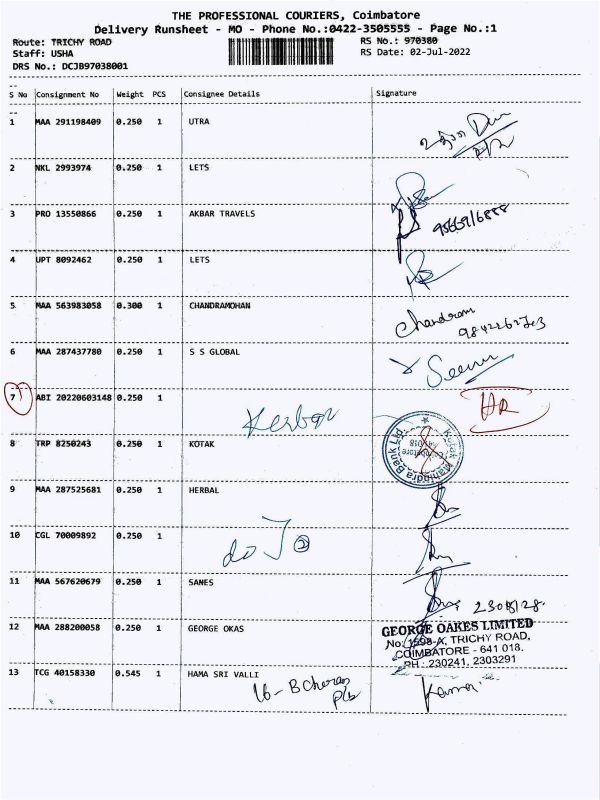 THE PROFESSIONAL COURIERS, Coimbatore
Delivery Runsheet - MO - Phone No.:0422-3505555 - Page No.:1
Route: TRICHY ROAD RS No.: 970380
Staff: USHA RS Date: 02-Jul-2022
DRS No.: DCJB97038001
S No Consignment No Weight PCS Consignee Details Signature
1 MAA 291198409 0.250 1 UTRA
2 NKL 2993974 0.250 1 LETS
3 PRO 13550866 0.250 1 AKBAR TRAVELS
4 UPT 8092462 0.250 1 LETS
5 MAA 563983058 0.300 1 CHANDRAMOHAN Chandram
6 MAA 287437780 0.250 1 S S GLOBAL
7 ABI 20220603148 0.250 1
8 TRP 8250243 0.250 1 KOTAK Kotak Mahindra Bank Ltd.
9 MAA 287525681 0.250 1 HERBAL
10 CGL 70009892 0.250 1 do 2
11 MAA 567620679 0.250 1 SANES
12 MAA 288200058 0.250 1 GEORGE OKAS
GEORGE OAKES LIMITED
No: 1598-A, TRICHY ROAD,
COIMBATORE - 641 018.
PH : 230241, 2303291
13 TCG 40158330 0.545 1 HAMA SRI VALLI